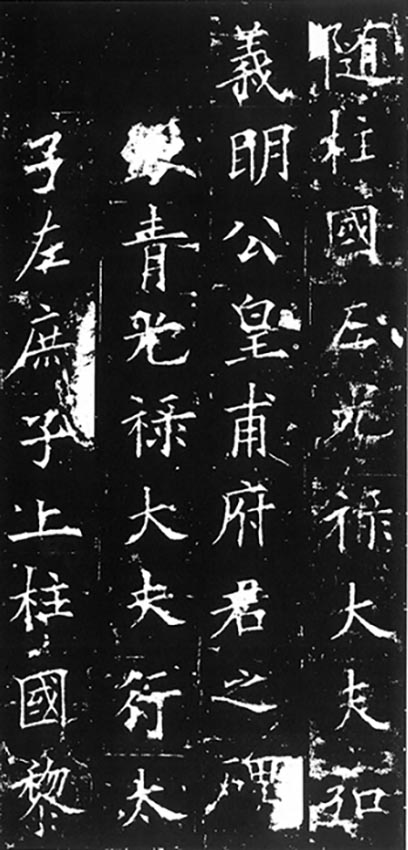 隨柱國左光祿大夫弘
義明公皇甫府君之碑
銀青光祿大夫行太
子左庶子上柱國黎